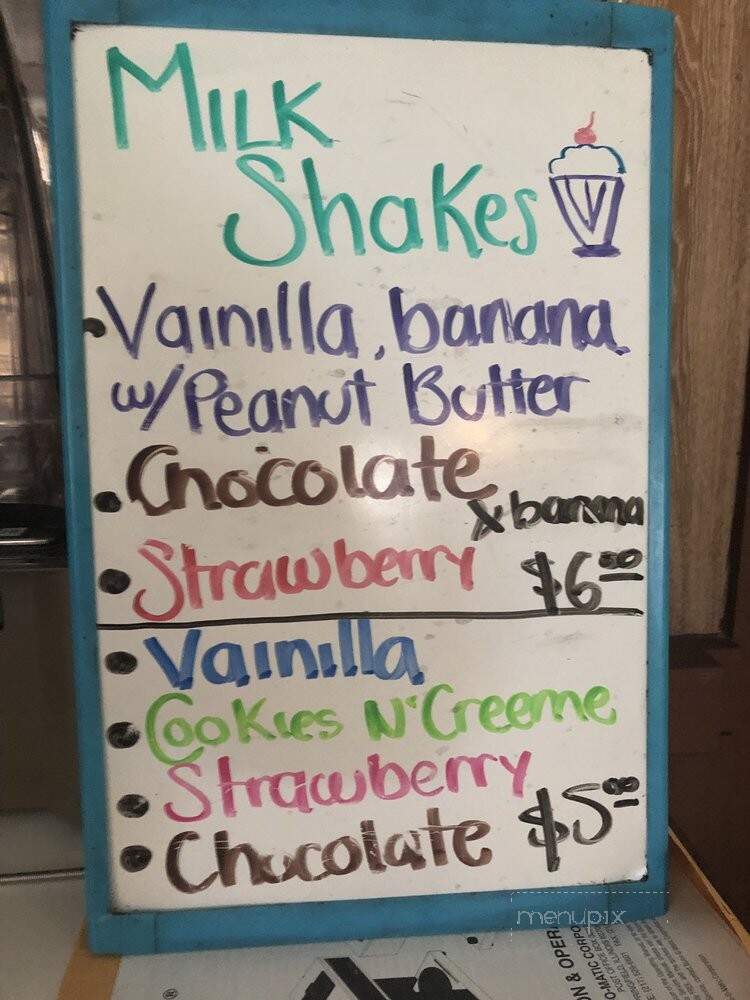 MILK
Shakes
• Vainilla, banana
w/Peanut Butter
• Chocolate
x banana
• Strawberry $6.00
• Vainilla
• Cookies N' Creeme
• Strawberry
• Chocolate $5.00
menupix